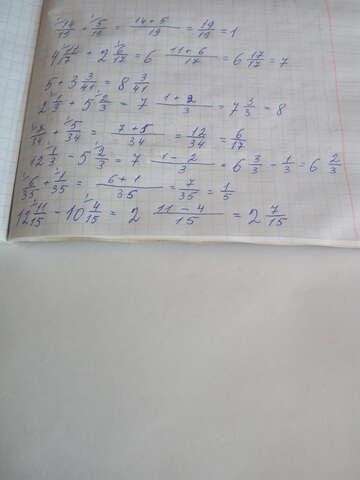 14/19 + 5/19 = 14+5/19 = 19/19 = 1
4 11/17 + 2 6/17 = 6 11+6/17 = 6 17/17 = 7
5 + 3 3/41 = 8 3/41
2 1/3 + 5 2/3 = 7 1+2/3 = 7 3/3 = 8
7/34 + 5/34 = 7+5/34 = 12/34 = 6/17
12 1/3 - 5 2/3 = 7 1-2/3 = 6 3/3 - 1/3 = 6 2/3
6/35 + 1/35 = 6+1/35 = 7/35 = 1/5
12 11/15 - 10 4/15 = 2 11-4/15 = 2 7/15